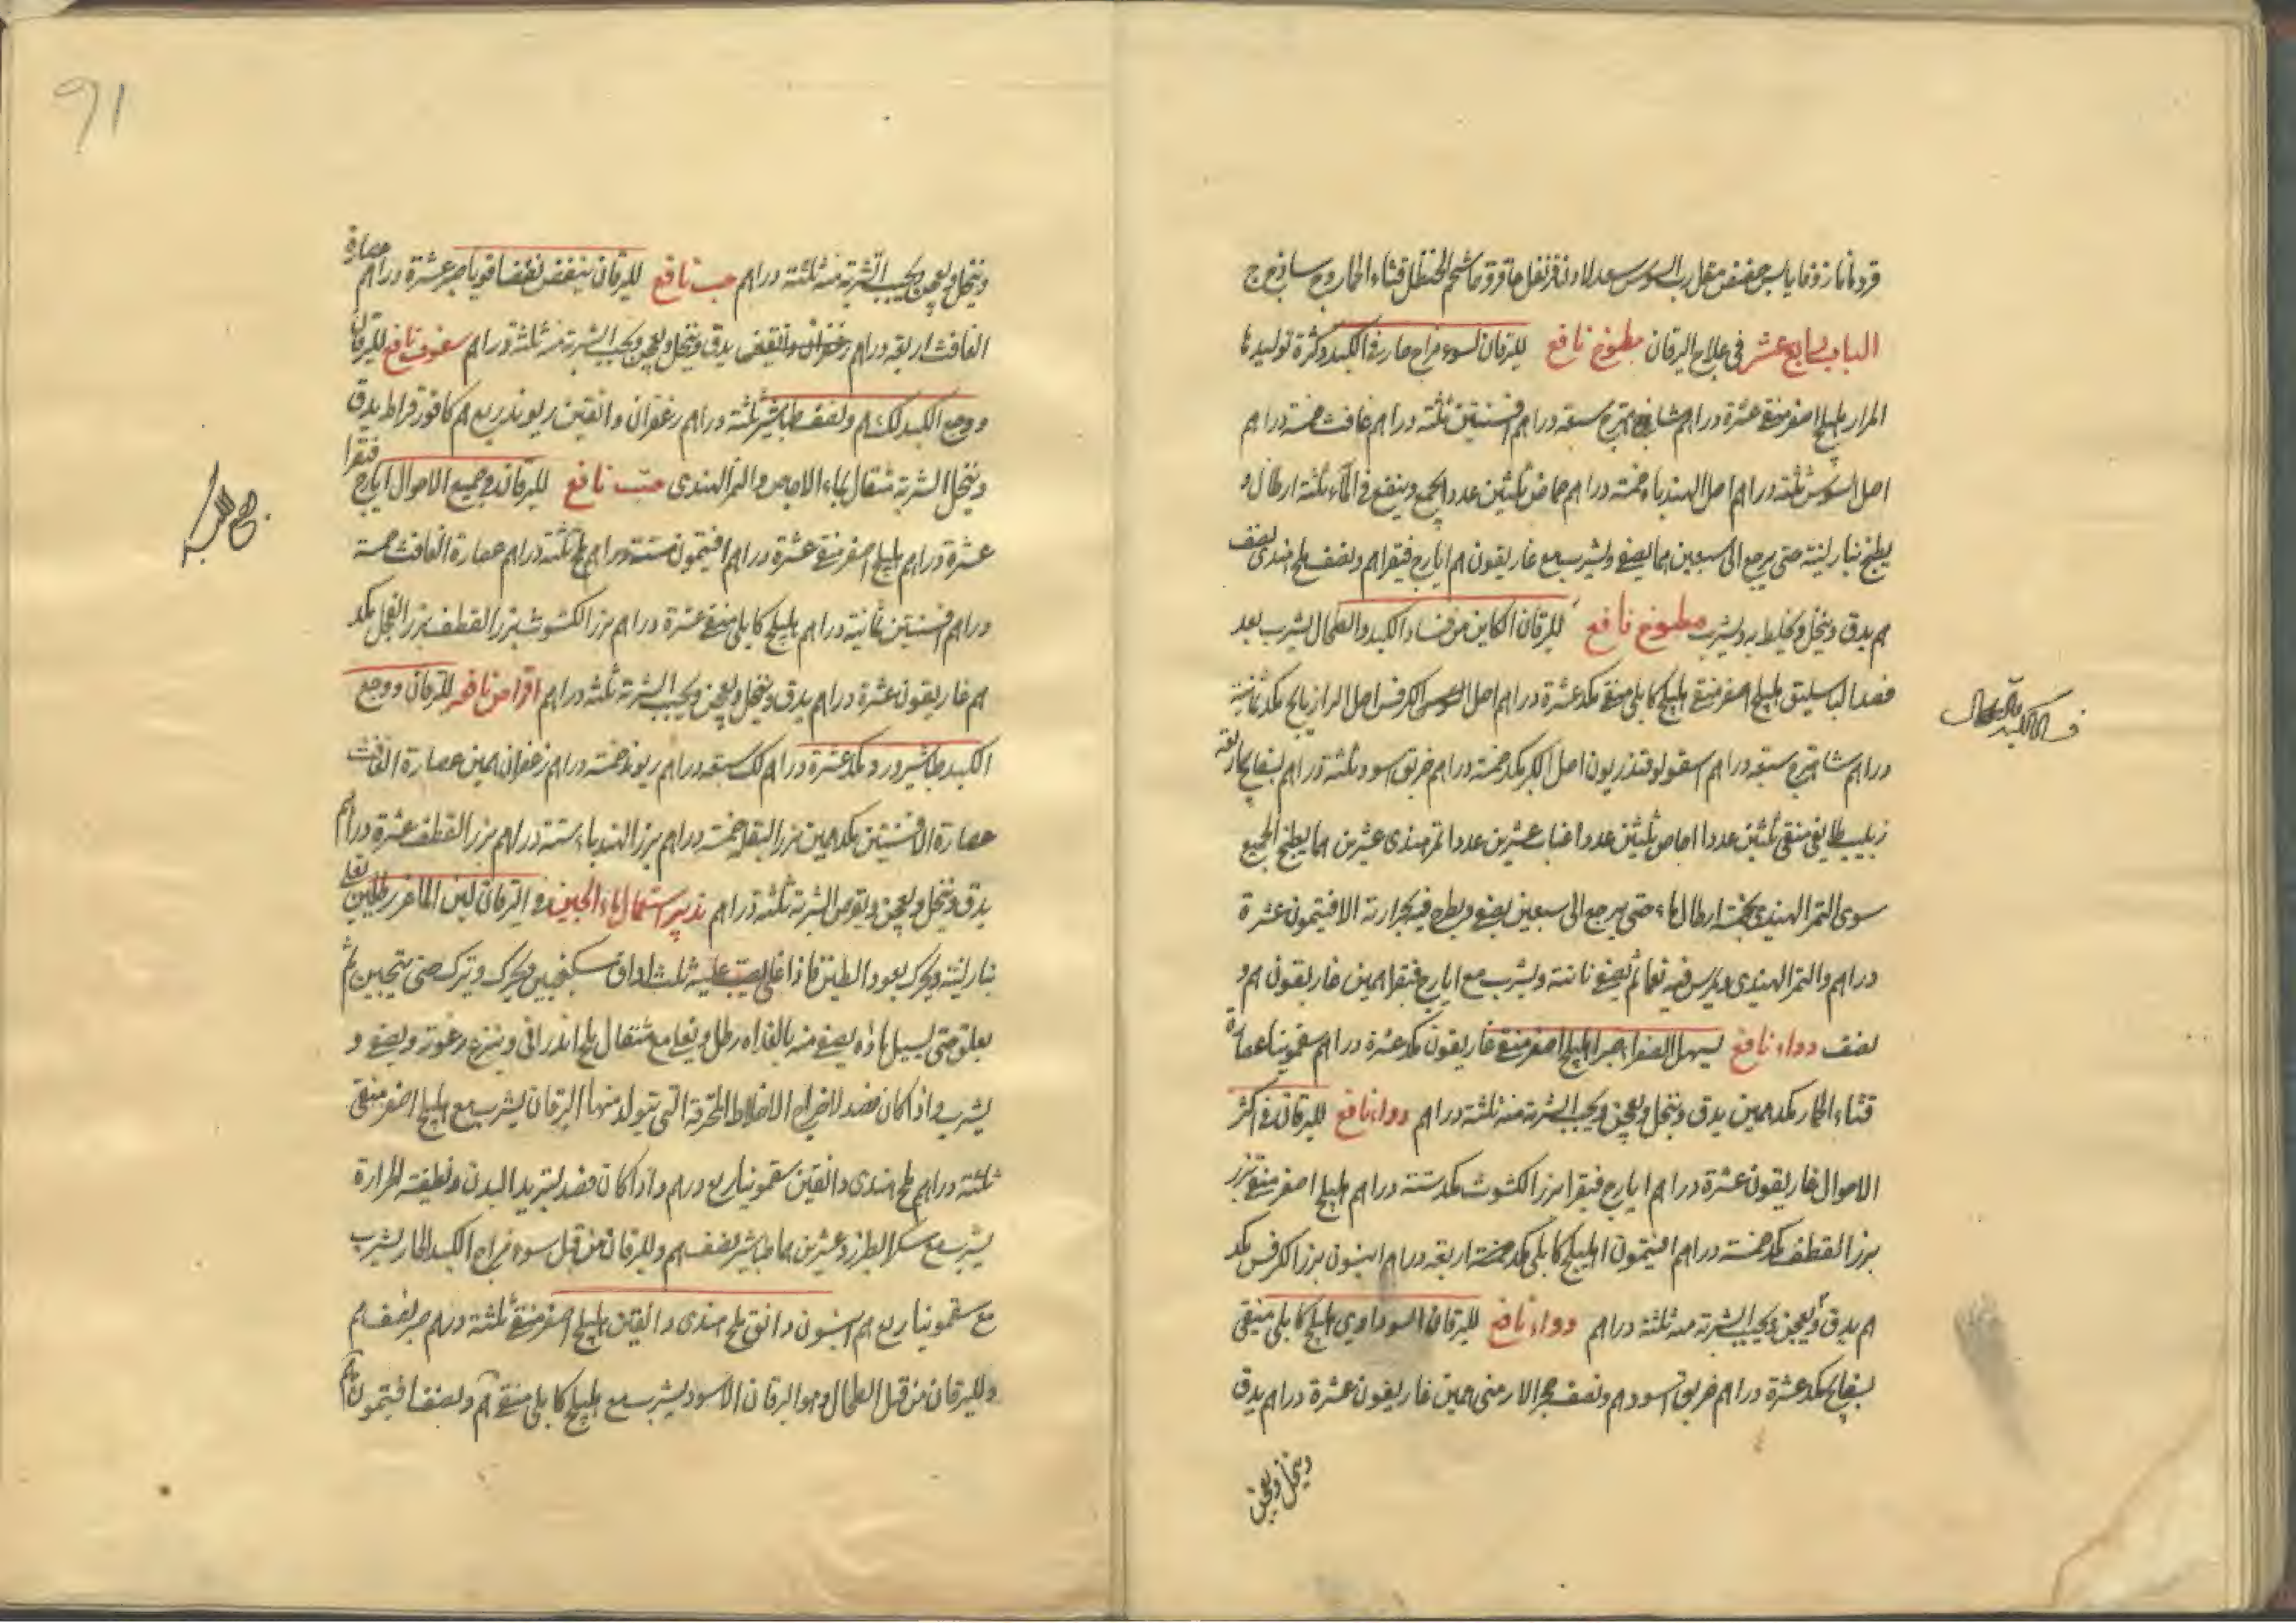 قردمانا زوفا يابس حضض مقل رب السوس سعد لادن قرنفل حاقروقما شحم الحنظل قثاء الحمار وج ساذج ج
الباب السابع عشر في علاج اليرقان مطبوخ نافع لليرقان لسوء مزاج حار في الكبد وكثرة توليدها
المرار هليلج اصفر منقى عشرة دراهم شاهترج سبعة دراهم افسنتين ثلثة دراهم غافث خمسة دراهم
اصل السوس ثلثة دراهم اصل الهندباء خمسة دراهم حماض ثلثين عددا يجمع وينقع في الماء ثلثة ارطال و
يطبخ بنار لينة حتى يرجع الى سبعين هما يصفى ويشرب مع غاريقون هم ايارج فيقرا هم ونصف ملح هندى نصف
هم يدق وينخل ويخلط به ويشرب مطبوخ نافع لليرقان الكاين من فساد الكبد والطحال يشرب بعد
فصد الباسليق هليلج اصفر منقى هليلج كابلى منقى مكد عشرة دراهم اصل السوس الكرفس اصل الرازيانج مكد ثمانية
دراهم شاهترج سبعة دراهم اسقولوقندريون اصل الكبر مكد خمسة دراهم خربق اسود ثلثة دراهم بسفايج اربعة
زبيب طايفى منقى ثلثين عددا اجاص ثلثين عددا عناب عشرين عددا تمر هندى عشرين هما يطبخ الجميع
سوى التمر الهندى بخمسة ارطال ماء حتى يرجع الى سبعين يصفى ويطرح فيه بحرارته الافتيمون عشرة
دراهم والتمر الهندى ويمرس فيه نعما ثم يصفى ثانية ويشرب مع ايارج فيقرا همين غاريقون هم و
نصف دواء نافع يسهل الصفراء صبر هليلج اصفر منقى غاريقون مكد عشرة دراهم سقمونيا عصارة
قثاء الحمار مكد همين يدق وينخل ويعجن ويحبب الشربة منه ثلثة دراهم دواء نافع لليرقان في اكثر
الاحوال غاريقون عشرة دراهم ايارج فيقرا بزر الكشوث مكد ستة دراهم هليلج اصفر منقى بزر
بزر القطف مكد خمسة دراهم افتيمون هليلج كابلى مكد خمسة اربعة دراهم انيسون بزر الكرفس مكد
هم يدق ويعجن ويحبب الشربة منه ثلثة دراهم دواء نافع لليرقان السوداوي هليلج كابلى منقى
بسفايج مكد عشرة دراهم خربق اسود هم ونصف حجر الارمنى همين غاريقون عشرة دراهم يدق
وينخل ويعجن
91
وينخل ويعجن ويحبب الشربة منه ثلثة دراهم حب نافع لليرقان ينفض نفضا قويا صبر عشرة دراهم عصارة
الغافث اربعة دراهم زعفران دانقين يدق وينخل ويعجن ويحبب الشربة منه ثلثة دراهم سفوف نافع لليرقان
ووجع الكبد لك هم ونصف طباشير ثلثة دراهم زعفران دانقين ريوند ربع هم كافور قيراط يدق
وينخل الشربة مثقال بماء الاجاص والتمر الهندى حب نافع لليرقان في جميع الاحوال ايارج فيقرا
عشرة دراهم هليلج اصفر منقى عشرة دراهم افتيمون ستة دراهم ملح ثلثة دراهم عصارة الغافث خمسة
دراهم افسنتين ثمانية دراهم هليلج كابلى منقى عشرة دراهم بزر الكشوث بزر القطف بزر الفجل مكد
هم غاريقون عشرة دراهم يدق وينخل ويعجن ويحبب الشربة ثلثة دراهم اقراص نافعة لليرقان ووجع
الكبد طباشير ورد مكد عشرة دراهم لك سبعة دراهم ريوند خمسة دراهم زعفران همين عصارة الغافث
عصارة الافسنتين مكد همين بزر البقلة خمسة دراهم بزر الهندباء ستة دراهم بزر القطف عشرة دراهم
يدق وينخل ويعجن ويقرص الشربة ثلثة دراهم تدبير استعمال ماء الجبن في اليرقان لبن الماعز رطلين يغلى
بنار لينة ويحرك بعود التين فاذا غلى يصب عليه ثلث اواق سكنجبين ويحرك ويترك حتى يتجبن ثم
يعلق حتى يسيل ماؤه يصفى منه بالغداة رطل ويغلى مع مثقال ملح اندرانى وينزع رغوته ويصفى و
يشرب واذا كان قصد لاخراج الاخلاط المحترقة التى تتولد منها اليرقان يشرب مع هليلج اصفر منقى
ثلثة دراهم ملح هندى دانقين سقمونيا ربع درهم واذا كان قصد لتبريد البدن وتطفئة الحرارة
يشرب مع سكر الطبرزد عشرين هما طباشير نصف هم ولليرقان من قبل سوء مزاج الكبد الحار يشرب
مع سقمونيا ربع هم انيسون دانق ملح هندى دانقين هليلج اصفر منقى ثلثة درهم صبر نصف هم
ولليرقان من قبل الطحال وهو اليرقان الاسود يشرب مع هليلج كابلى منقى هم ونصف افتيمون هم